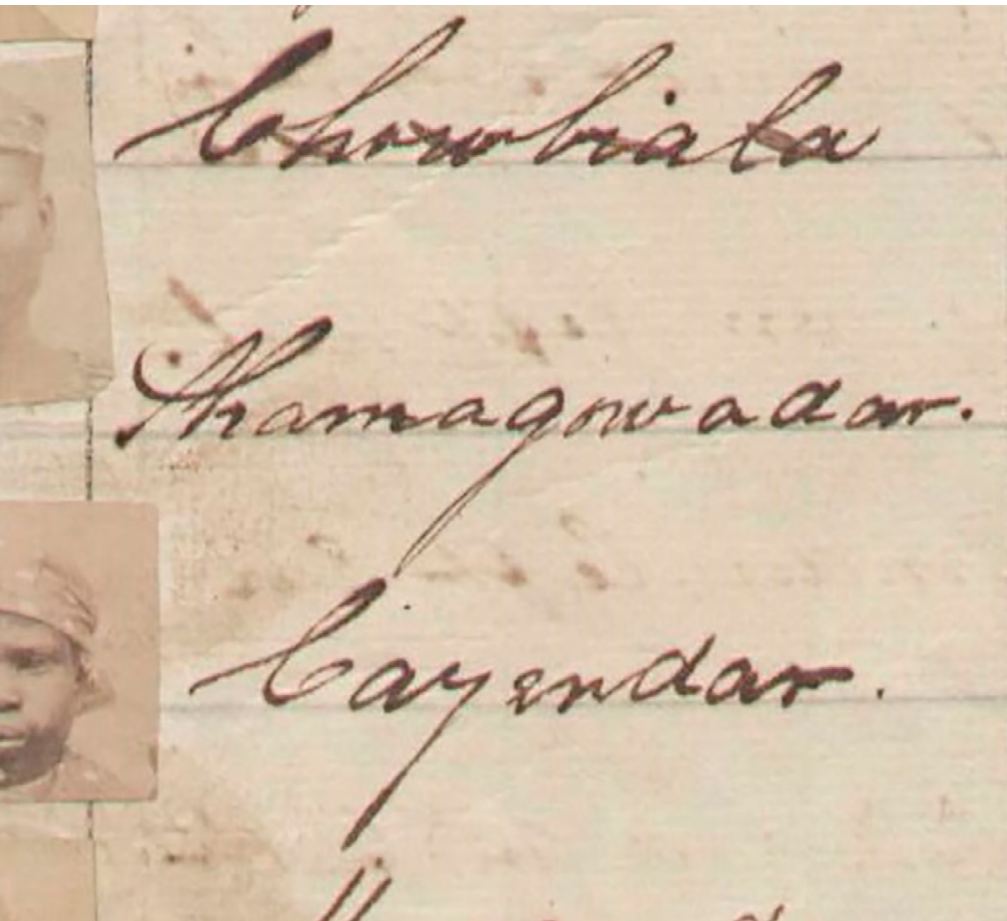 Chowbiala
Thamagowadar.
Cayendar.